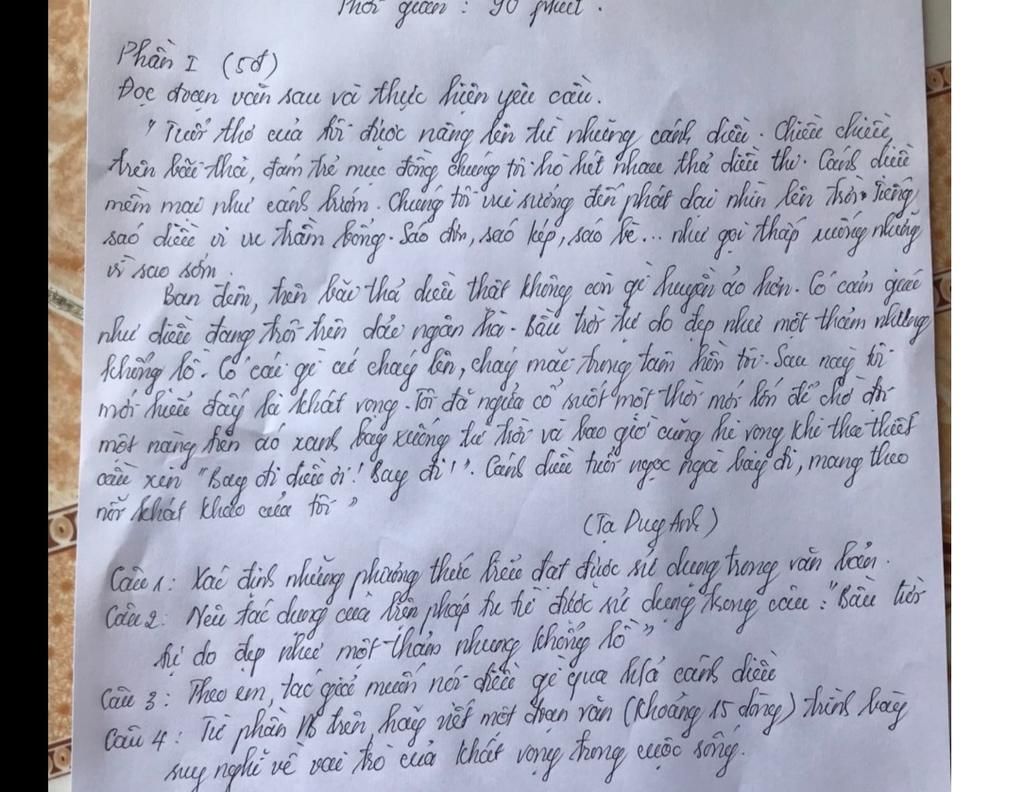 Thời gian : 90 phút .
Phần I (5đ)
Đọc đoạn văn sau và thực hiện yêu cầu.
" Tuổi thơ của tôi được nâng lên từ những cánh diều. Chiều chiều,
trên bãi thả, đám trẻ mục đồng chúng tôi hò hét nhau thả diều thi. Cánh diều
mềm mại như cánh bướm. Chúng tôi vui sướng đến phát dại nhìn lên trời. Tiếng
sáo diều vi vu trầm bổng. Sáo đơn, sáo kép, sáo bè... như gọi thấp xuống những
vì sao sớm.
Ban đêm, trên bãi thả diều thật không còn gì huyền ảo hơn. Có cảm giác
như diều đang trôi trên dải ngân hà. Bầu trời tự do đẹp như một thảm nhung
khổng lồ. Có cái gì cứ cháy lên, cháy mãi trong tâm hồn tôi. Sau này tôi
mới hiểu đấy là khát vọng. Tôi đã ngửa cổ suốt một thời mới lớn để chờ đợi
một nàng tiên áo xanh bay xuống từ trời và bao giờ cũng hi vọng khi tha thiết
cầu xin "Bay đi diều ơi! Bay đi!". Cánh diều tuổi ngọc ngà bay đi, mang theo
nỗi khát khao của tôi "
(Tạ Duy Anh)
Câu 1: Xác định những phương thức biểu đạt được sử dụng trong văn bản.
Câu 2: Nêu tác dụng của biện pháp tu từ được sử dụng trong câu: "Bầu trời
tự do đẹp như một thảm nhung khổng lồ"
Câu 3: Theo em, tác giả muốn nói điều gì qua h/ả cánh diều
Câu 4: Từ phần trên, hãy viết một đoạn văn (khoảng 15 dòng) trình bày
suy nghĩ về vai trò của khát vọng trong cuộc sống.